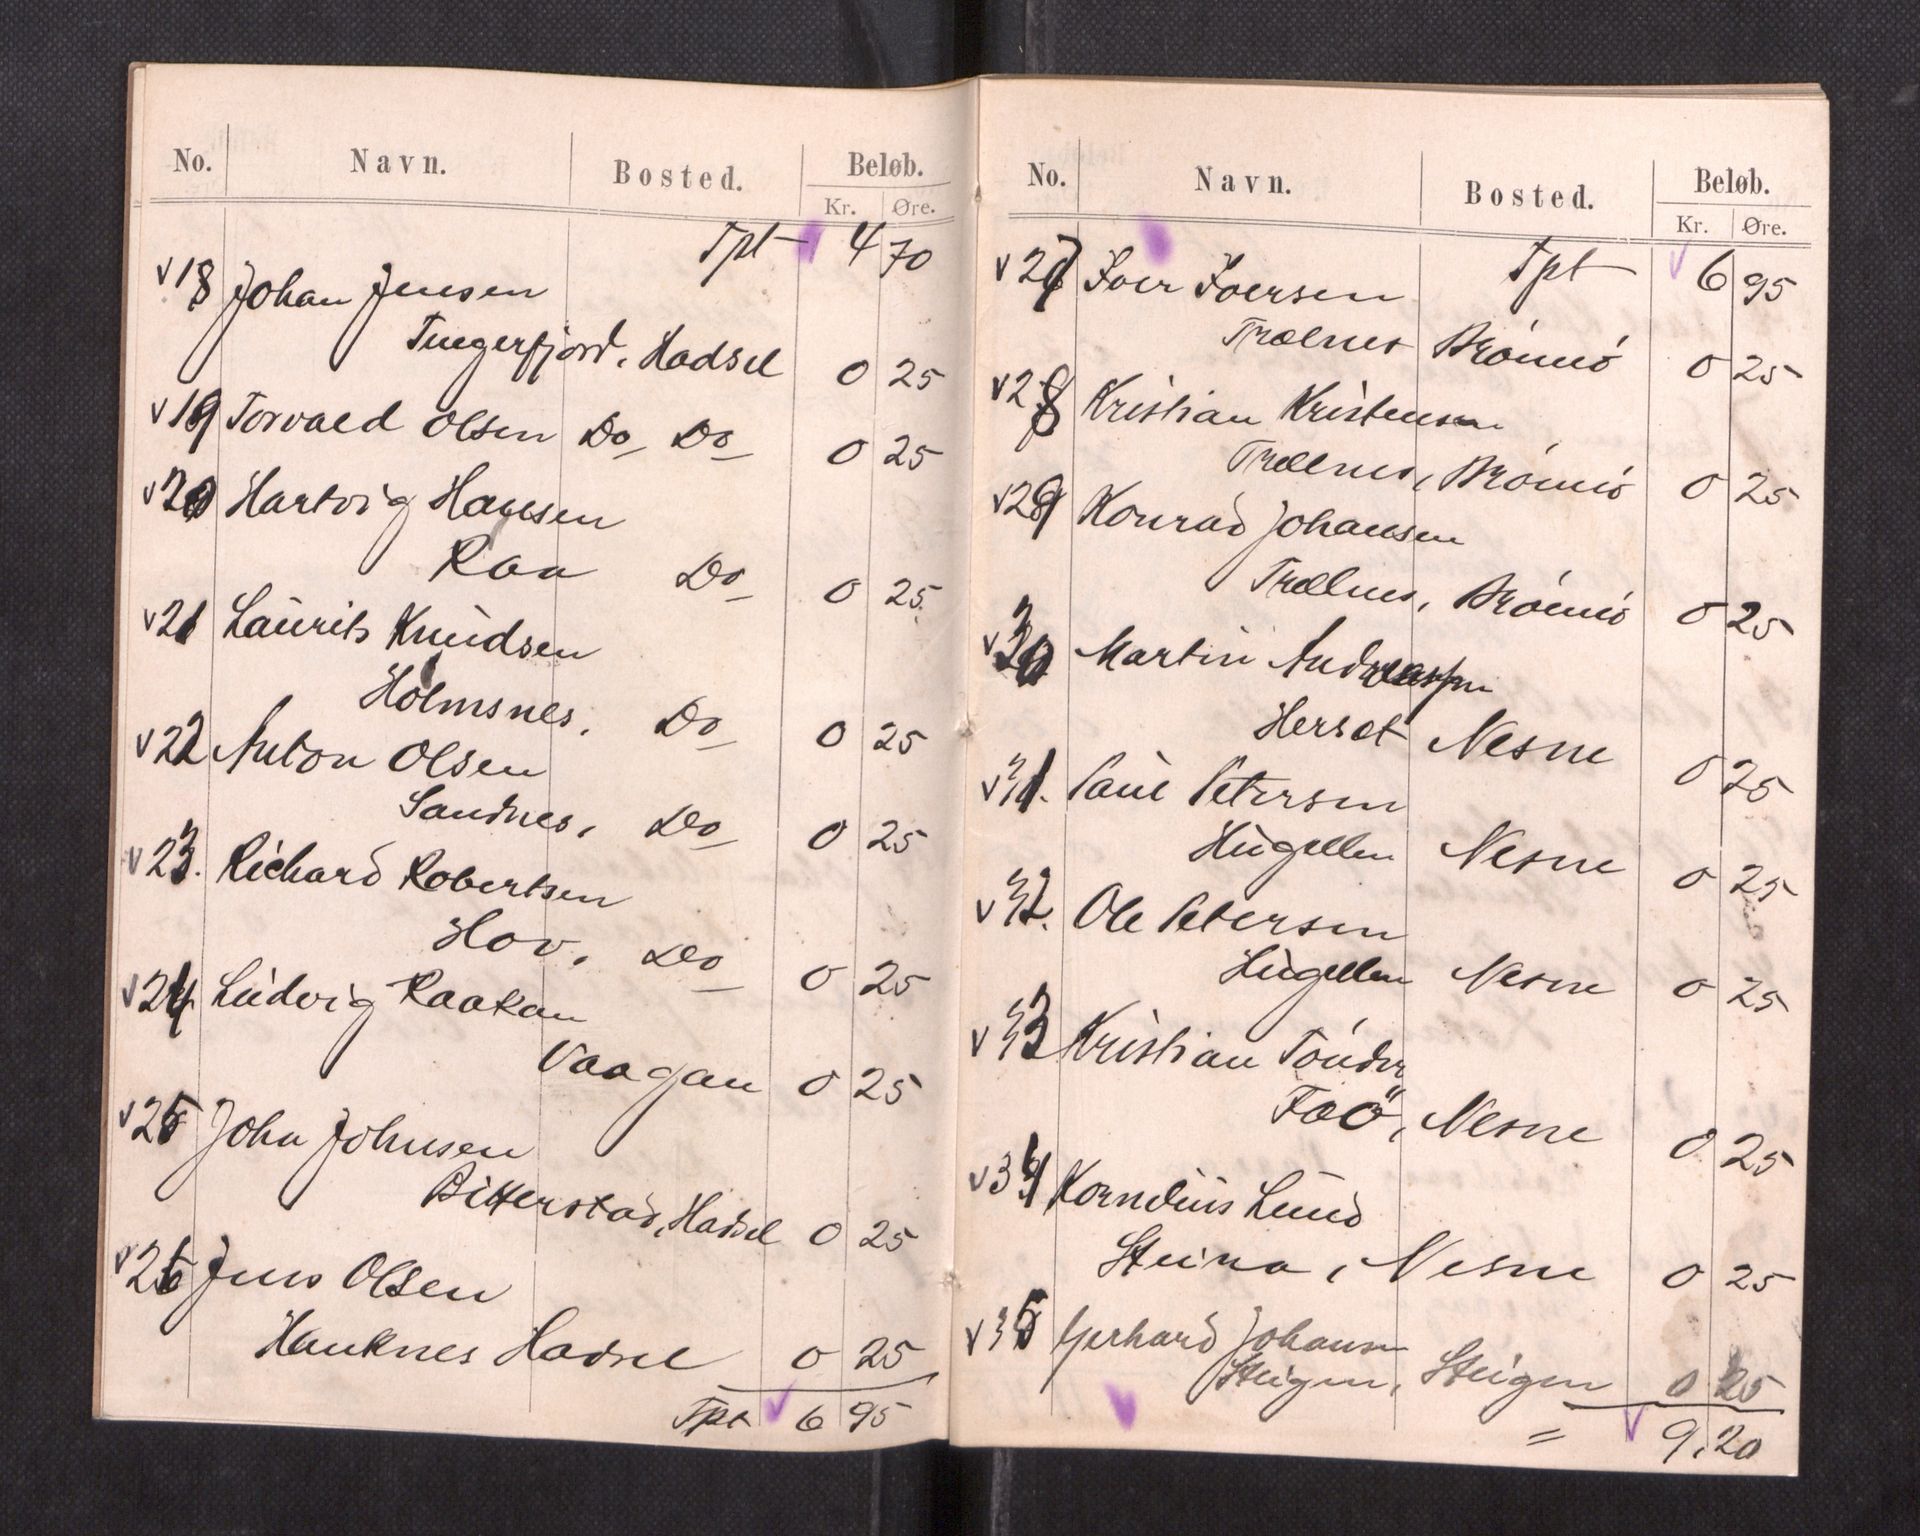 No. Navn. Bosted. Beløb.
Kr. Øre.
Tpt 4 70
v 18 Johan Jensen
Tuegerfjord, Hadsel 0 25
v 19 Torvald Olsen Do Do 0 25
v 20 Hartvig Hansen
Raa Do 0 25
v 21 Laurits Knudsen
Holmsnes, Do 0 25
v 22 Anton Olsen
Sandnes, Do 0 25
v 23. Richard Robertsen
Hov, Do 0 25
v 24 Ludvig Raakan
Vaagan 0 25
v 25 John Johnsen
Bitterstad, Hadsel 0 25
v 26 Jens Olsen
Hauknes Hadsel 0 25
Tpt 6 95
No. Navn. Bosted. Beløb.
Kr. Øre.
Tpt 6 95
v 27 Iver Iversen
Trælnes Brønnö 0 25
v 28 Kristian Kristensen
Trælnes, Brønnö 0 25
v 29 Konrad Johansen
Trælnes, Brønnö 0 25
v 30 Martin Andreassen
Herset Nesne 0 25
v 31. Paul Petersen
Hugellen Nesne 0 25
v 32. Ole Petersen
Hugellen Nesne 0 25
v 33 Kristian Tönder
Toö, Nesne 0 25
v 34 Kornelius Lund
Steina, Nesne 0 25
v 35 Gerhard Johansen
Steigen, Steigen 0 25
= 9,20